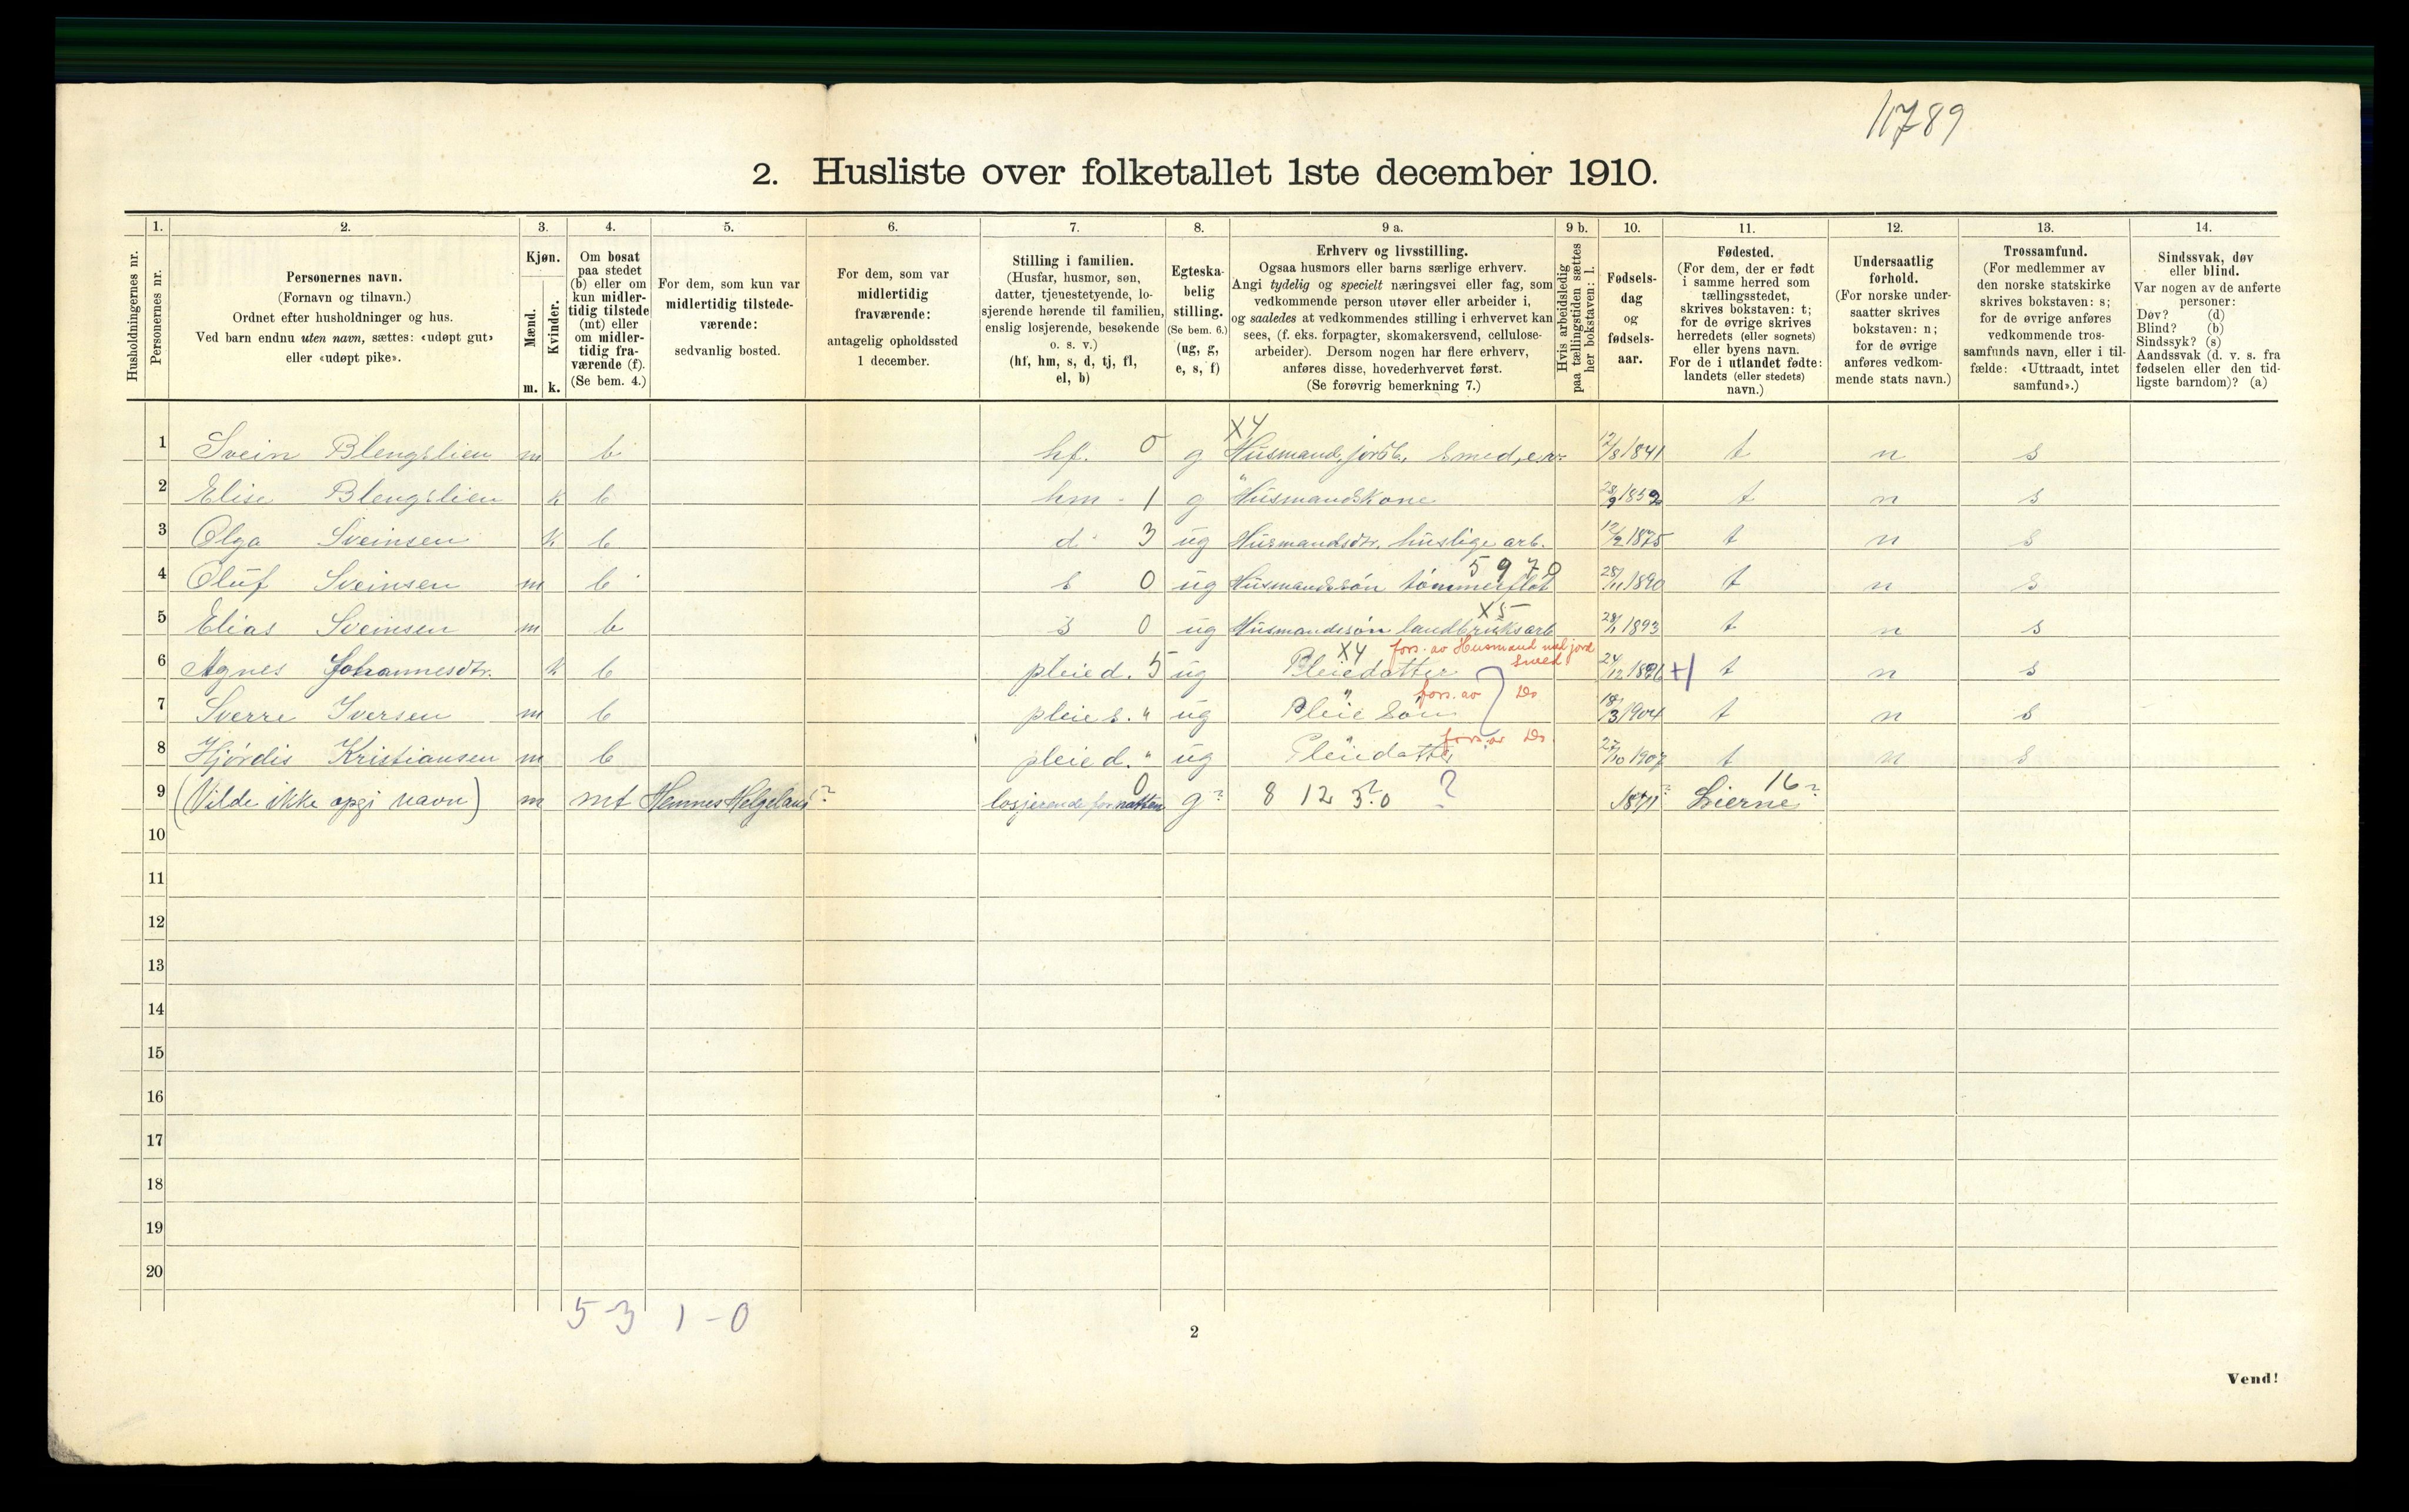 11789
2. Husliste over folketallet 1ste december 1910.
Husholdningernes nr.
1.
Personernes nr.
2.
Personernes navn.
(Fornavn og tilnavn.)
Ordnet efter husholdninger og hus.
Ved barn endnu uten navn, sættes: «udøpt gut»
eller «udøpt pike».
3.
Kjøn.
Mænd.
Kvinder.
m. k.
4.
Om bosat
paa stedet
(b) eller om
kun midler-
tidig tilstede
(mt) eller
om midler-
tidig fra-
værende (f).
(Se bem. 4.)
5.
For dem, som kun var
midlertidig tilstede-
værende:
sedvanlig bosted.
6.
For dem, som var
midlertidig
fraværende:
antagelig opholdssted
1 december.
7.
Stilling i familien.
(Husfar, husmor, søn,
datter, tjenestetyende, lo-
sjerende hørende til familien,
enslig losjerende, besøkende
o. s. v.)
(hf, hm, s, d, tj, fl,
el, b)
8.
Egteska-
belig
stilling.
(Se bem. 6.)
(ug, g,
e, s, f)
9 a.
Erhverv og livsstilling.
Ogsaa husmors eller barns særlige erhverv.
Angi tydelig og specielt næringsvei eller fag, som
vedkommende person utøver eller arbeider i,
og saaledes at vedkommendes stilling i erhvervet kan
sees, (f. eks. forpagter, skomakersvend, cellulose-
arbeider). Dersom nogen har flere erhverv,
anføres disse, hovederhvervet først.
(Se forøvrig bemerkning 7.)
9 b.
Hvis arbeidsledig
paa tællingstiden sættes
her bokstaven: l.
10.
Fødsels-
dag
og
fødsels-
aar.
11.
Fødested.
(For dem, der er født
i samme herred som
tællingsstedet,
skrives bokstaven: t;
for de øvrige skrives
herredets (eller sognets)
eller byens navn.
For de i utlandet fødte:
landets (eller stedets)
navn.)
12.
Undersaatlig
forhold.
(For norske under-
saatter skrives
bokstaven: n;
for de øvrige
anføres vedkom-
mende stats navn.)
13.
Trossamfund.
(For medlemmer av
den norske statskirke
skrives bokstaven: s;
for de øvrige anføres
vedkommende tros-
samfunds navn, eller i til-
fælde: «Uttraadt, intet
samfund».)
14.
Sindssvak, døv
eller blind.
Var nogen av de anførte
personer:
Døv? (d)
Blind? (b)
Sindssyk? (s)
Aandssvak (d. v. s. fra
fødselen eller den tid-
ligste barndom)? (a)
X4
1 Svein Blengslien m b hf. 0 g Husmand, jordb., Smed, e.r. 12/8 1841 t n s
2 Elise Blengslien k b hm - 1 g Husmandskone 28/9 1852 t n s
3 Olga Sveinsen k b d 3 ug Husmandsdtr. huslige arb. 12/2 1875 t n s
5970
4 Oluf Sveinsen m b s 0 ug Husmandssøn tømmerfløt 28/11 1890 t n s
X5
5 Elias Sveinsen m b s 0 ug Husmandssøn landbruksarb 1893 t n s
X4 fors. av Husmand med jord
Smed
6 Agnes Johannesdtr. k b pleie d. 5 ug Pleiedatter 24/12 1896 +1 t n s
fors. av Do
7 Sverre Iversen m b pleie s. " ug Pleie Søn 18/3 1904 t n s
fors. av Do
8 Hjørdis Kristiansen m b pleie d. " ug Pleiedatter 27/10 1907 t n s
9 (Vilde ikke opgi navn) m mt Hemnes Helgeland ? losjerende for natten 0 g? 8 12 3?0 ? 1871? Lierne 16?
10
11
12
13
14
15
16
17
18
19
20
5-3 1-0
2
Vend!